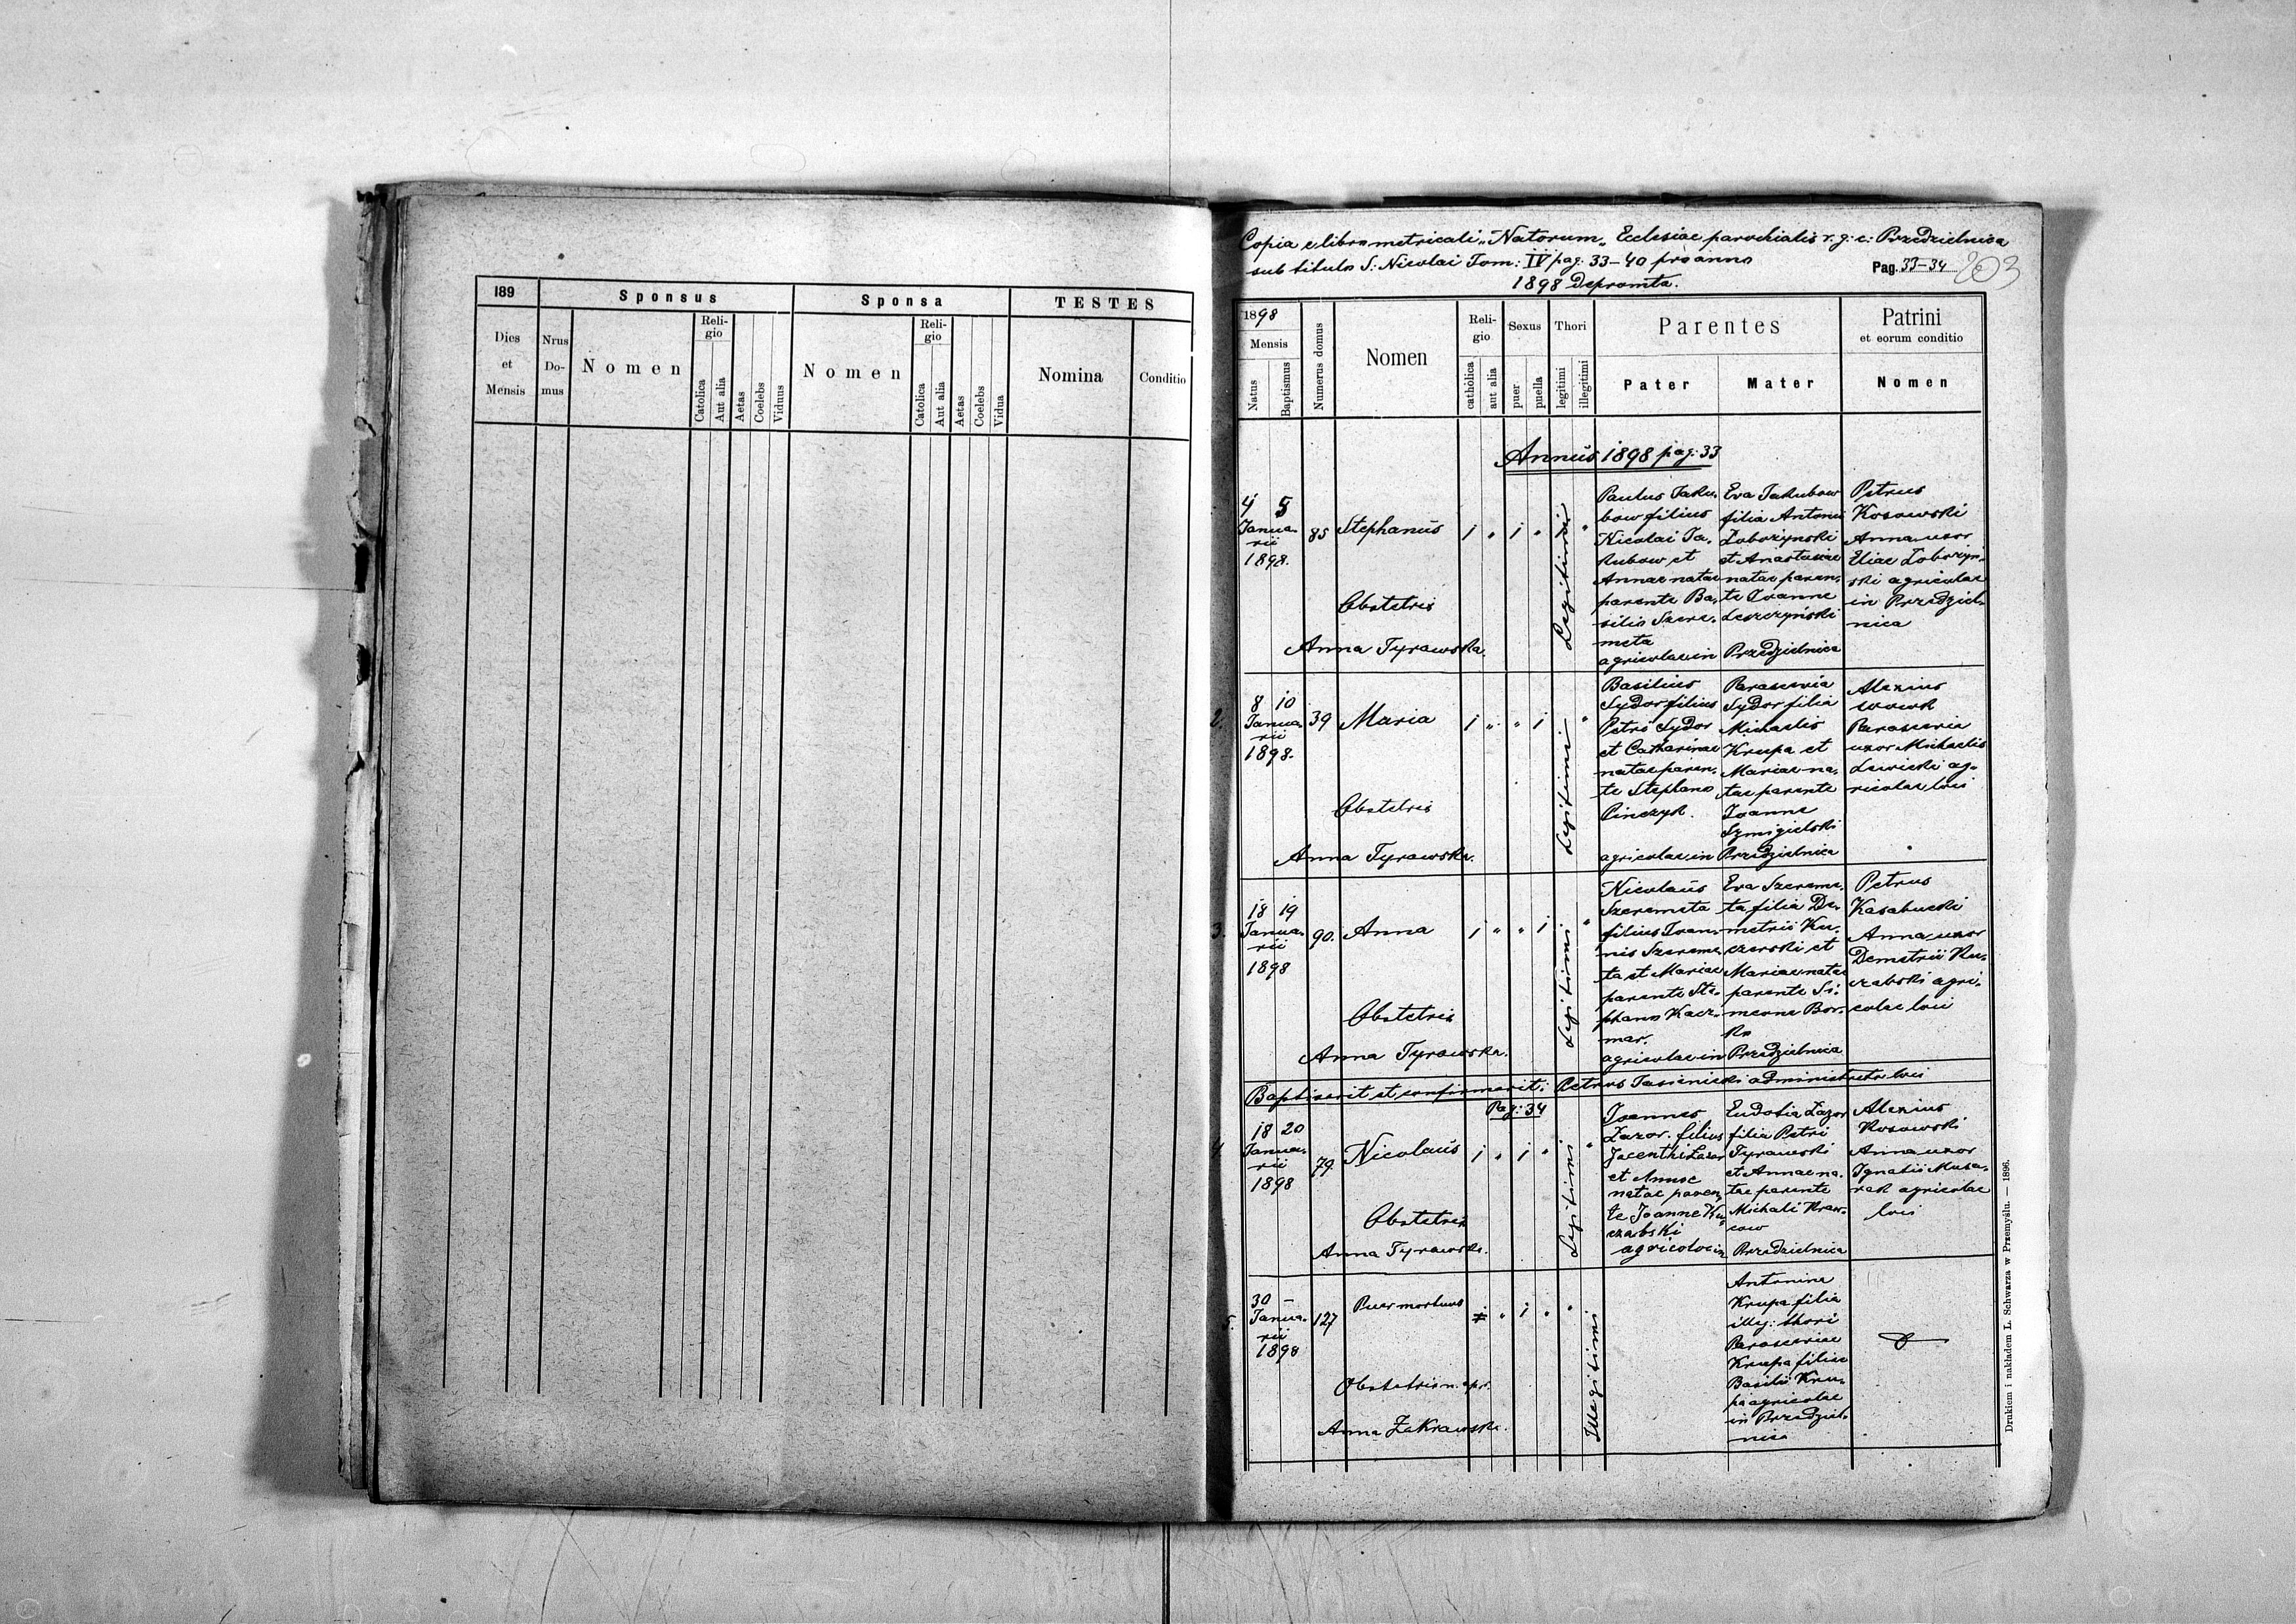 189
Sponsus
Sponsa
TESTES
Dies
et
Mensis
Nrus
Do-
mus
Nomen
Reli-
gio
Catolica
Aut alia
Aetas
Coelebs
Viduus
Nomen
Reli-
gio
Catolica
Aut alia
Aetas
Coelebs
Vidua
Nomina
Conditio
Copia e libro metricali „Natorum„ Ecclesiae parochialis r. g: c: Przedzielnica
sub titulo S: Nicolai Tom: IV pag: 33–40 pro anno
1898 depromta.
Pag. 33–34
203
1898
Mensis
Natus
Baptismus
Numerus domus
Nomen
Reli-
gio
catholica
aut alia
Sexus
puer
puella
Thori
legitimi
illegitimi
Parentes
Pater
Mater
Patrini
et eorum conditio
Nomen
Annus 1898 pag: 33
4 5
Janua-
rii
1898.
85
Stephanus
1 „ 1 „
Legitimi
Obstetrix
Anna Tyrawska.
Paulus Jaku-
bow filius
Nicolai Ja-
kubow et
Annae natae
parente Ba-
silio Szere-
meta
agricolae in
Eva Jakubow
filia Antonii
Łobożynski
et Anastasiae
natae paren-
te Joanne
Leszczyński
Przedzielnica
Petrus
Kosowski
Anna uxor
Eliae Łobożyn-
ski agricolae
in Przedziel-
nica
2.
8 10
Janua-
rii
1898.
39
Maria
1 „ „ 1
Legitimi
Obstetrix
Anna Tyrawska.
Basilius
Sydor filius
Petri Sydor
et Catharinae
natae paren-
te Stephano
Pinczyk.
agricolae in
Parascevia
Sydor filia
Michaelis
Krupa et
Mariae na-
tae parente
Joanne
Szmigielski
Przedzielnica
Alexius
Wowk
Parascevia
uxor Michaelis
Lewicki ag-
ricolae loci
3.
18 19
Janua-
rii
1898
90.
Anna
1 „ „ 1
Legitimi
Obstetrix
Anna Tyrawska.
Nicolaus
Szeremeta
filius Joan-
nis Szereme-
ta et Mariae
parente Ste-
phano Kacz-
mar.
agricolae in
Eva Szereme-
ta filia De-
metrii Ku-
czerski et
Mariae natae
parente Si-
meone Bor-
ko
Przedzielnica
Petrus
Kasabucki
Anna uxor
Demetrii Ku-
czabski agri-
colae loci
Baptisavit et confirmavit: Petrus Jasienicki administrator loci
Pag: 34
4
18 20
Janua-
rii
1898
79
Nicolaus
1 „ 1 „
Legitimi
Obstetrix
Anna Tyrawska.
Joannes
Łazor. filius
Jacenthi Łazor
et Annae
natae paren-
te Joanne Ku-
czabski
agricolae in
Eudosia Łazor
filia Petri
Tyrawski
et Annae na-
tae parente
Michaeli Kraw-
cow
Przedzielnica
Alexius
Kosowski
Anna uxor
Ignatii Musa-
rak agricolae
loci
5.
30 –
Janua-
rii
1898
127
Puer mortuus
1 „ 1 „
Illegitimi
Obstetrix n. apr.
Anna Zakrawska.
Antonina
Krupa filia
illeg: thori
Parasceviae
Krupa filiae
Basilii Kru-
pa agricolae
in Przedziel-
nica
Drukiem i nakładem L. Schwarza w Przemyślu. — 1896.